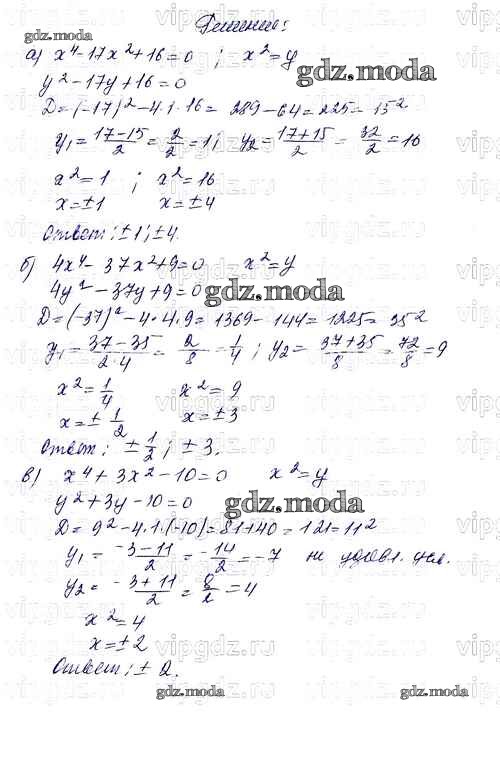 Решение:
gdz.moda
а) x⁴-17x²+16=0 ; x²=y
gdz.moda
y²-17y+16=0
D=(-17)²-4·1·16= 289-64=225=15²
y₁=17-15/2=2/2=1; y₂=17+15/2=32/2=16
x²=1 ; x²=16
x=±1 x=±4
Ответ: ±1; ±4.
б) 4x⁴-37x²+9=0 x²=y
4y²-37y+9=0
gdz.moda
D=(-37)²-4·4·9=1369-144=1225=35²
y₁=37-35/2·4=2/8=1/4; y₂=37+35/8=72/8=9
x²=1/4 x²=9
x=±1/2 x=±3
Ответ: ±1/2; ±3.
в) x⁴+3x²-10=0 x²=y
y²+3y-10=0
gdz.moda
D=9²-4·1·(-10)=81+40=121=11²
y₁=-3-11/2=-14/2=-7 не удовл. усл.
y₂=-3+11/2=8/2=4
x²=4
x=±2
Ответ: ±2.
gdz.moda
gdz.moda
vipgdz.ru